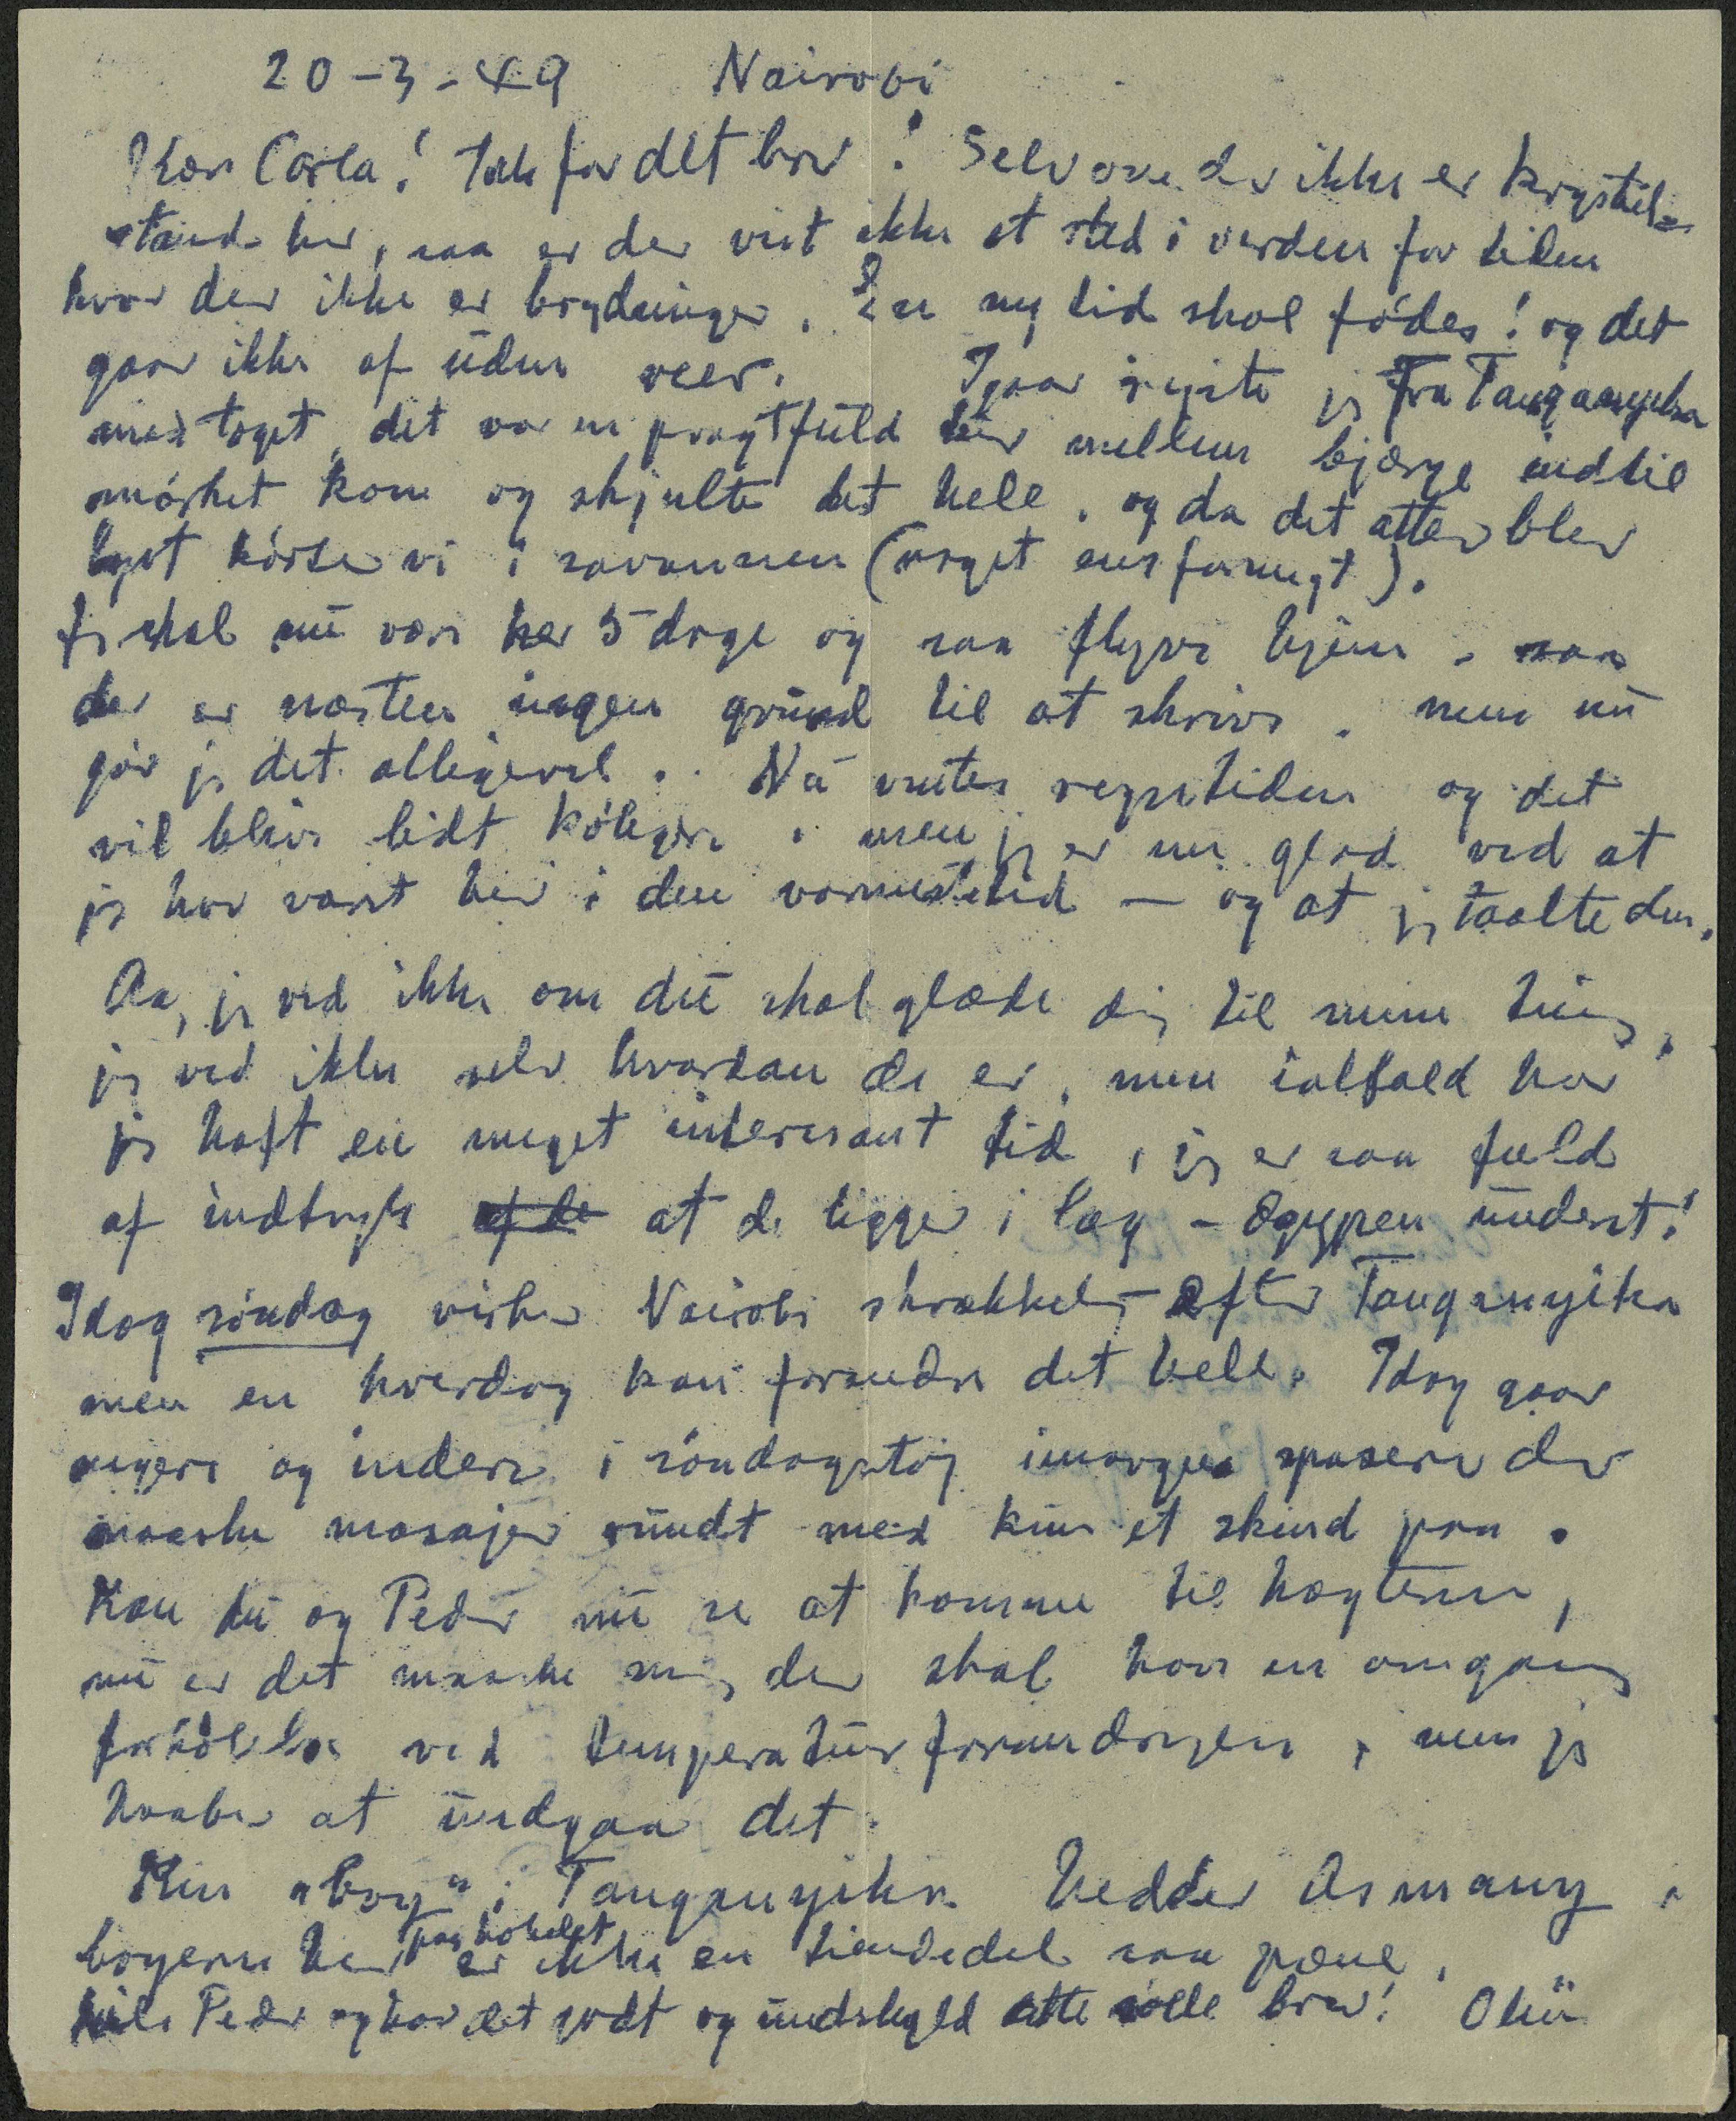 20-3-49 Nairobi
Kære Carla! Tak for dit brev! Selv om der ikke er krystil-
stand her, saa er der vist ikke et sted i verden for tiden
hvor der ikke er brydninger. En ny tid skal födes! og det
gaar ikke af uden veer. Igaar rejste jeg fra Tanganyika
med toget, det var en pragtfuld tur mellem bjærge indtil
mórket kom og skjulte det hele, og da det atter blev
lyst kórte vi i savannen (noget ensformigt).
Jeg skal nu være her 5 dage og saa flyve hjem. saa
der er næsten ingen grund til at skrive. men nu
gör jeg det alligevel. Nu ventes regntiden og det
vil blive lidt kóligere. men jeg er nu glad ved at
jeg har været her i den varmeste tid — og at jeg taalte den.
Aa, jeg ved ikke om du skal glæde dig til mine ting,
jeg ved ikke selv hvordan de er, men ialfald har
jeg haft en meget interessant tid, jeg er saa fuld
af indtryk af de at de ligger i læg - Ægypen underst!
Idag söndag virker Nairobi skrækkelig efter Tanganyika
men en hverdag kan forandre det hele. Idag gaar
negere og indere i söndagstöj imorgen spaserer der
maaske masajer rundt med kun et skind paa.
Kan du og Peder nu se at komme til hægterne,
nu er det maaske mig der skal have en omgang
forkölelse ved temperaturforandringen, men jeg
haaber at undgaa det.
Min "boy" i Tanganyika hedder Asmany,
boyerne her paa hotellet er ikke en tiendedel saa pæne.
Hils Peder og hav det godt og undskyld dette brev!